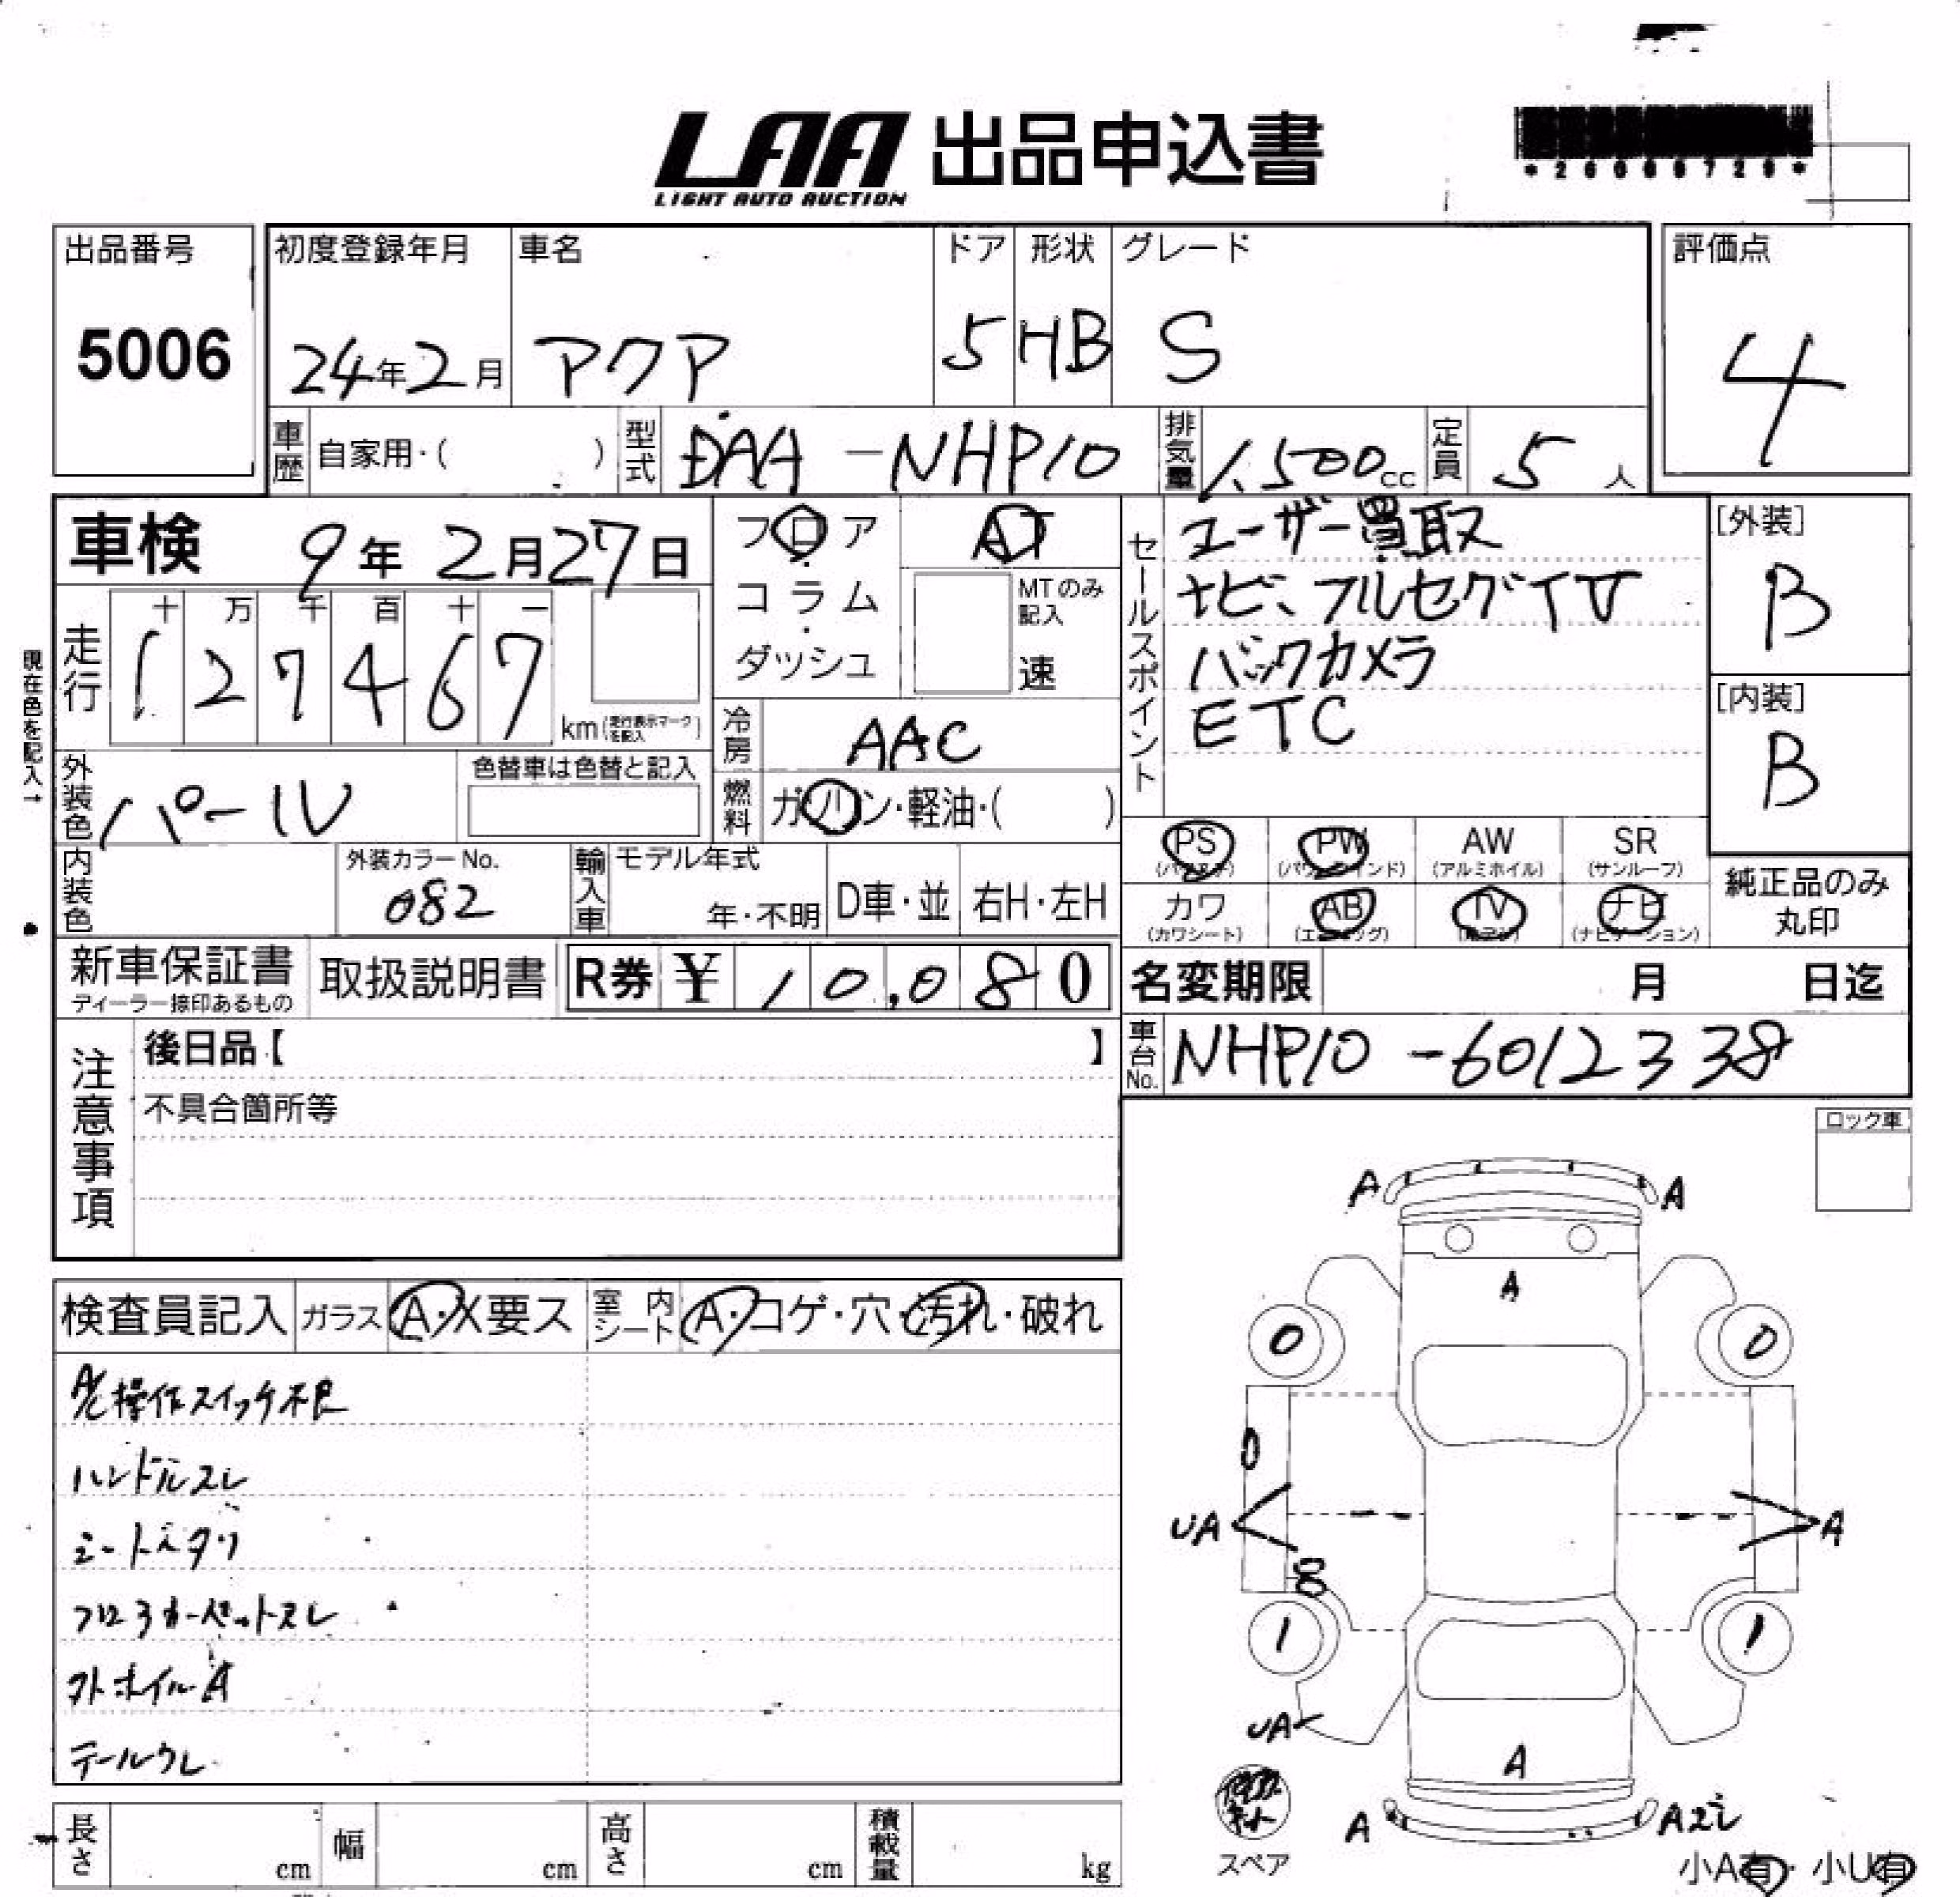 LAA 出品申込書
LIGHT AUTO AUCTION
出品番号 初度登録年月 車名 ドア 形状 グレード 評価点
5006 24年2月 アクア 5 HB S 4
車歴 自家用・( ) 型式 DAA-NHP10 排気量 1,500cc 定員 5人
車検 9年2月27日
フロア・コラム・ダッシュ
AT
MTのみ記入 速
セールスポイント
ユーザー買取
ナビ、フルセグTV
バックカメラ
ETC
[外装]
B
[内装]
B
現在色を記入→
走行 十万千百十一
127467 km(走行表示マークを記入)
冷房 AAC
外装色 パール 色替車は色替と記入
燃料 ガソリン・軽油・( )
PS (パワステ) PW (パワーウインド) AW (アルミホイル) SR (サンルーフ)
カワ (カワシート) AB (エアバッグ) TV (テレビ) ナビ (ナビゲーション)
純正品のみ
丸印
内装色 外装カラーNo. 082 輸入車 モデル年式 年・不明 D車・並 右H・左H
新車保証書 ディーラー捺印あるもの 取扱説明書 R券 ¥ 10,080
名変期限 月 日迄
車台No. NHP10-6012338
注意事項
後日品【 】
不具合箇所等
ロック車
検査員記入 ガラス A・X要ス 室内シート A・コゲ・穴・汚れ・破れ
A/C操作スイッチ不良
ハンドルスレ
シートヘタリ
フロアカーペットスレ
外ホイルA
テールワレ
A A
A
0 0
UA A
1 1
UA
A
A A2
スペア
小A有・小U有
長さ cm 幅 cm 高さ cm 積載量 kg